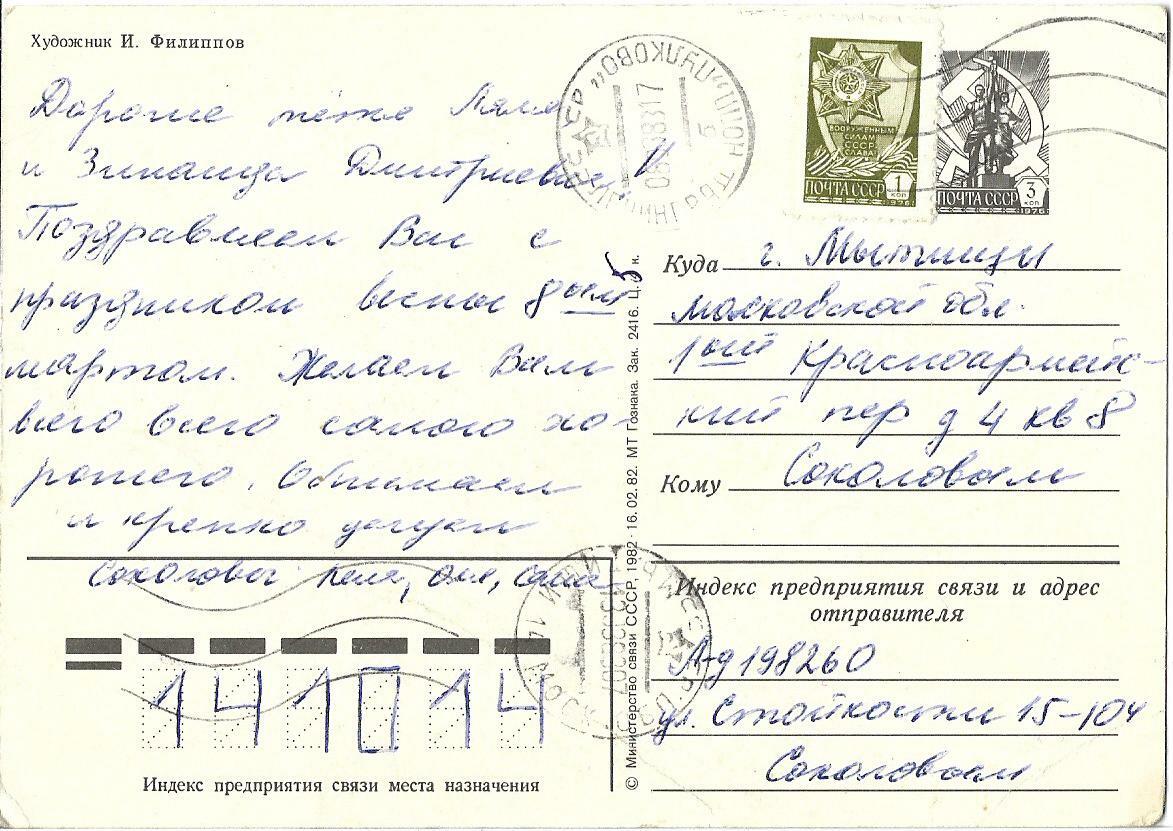 Художник И. Филиппов
Дорогие тётя Ляля
и Зинаида Дмитриевна!
Поздравляем Вас с
праздником весны 8ым
мартом. Желаем Вам
всего всего самого хо-
рошего. Обнимаем
и крепко целуем
Соколовы Неля, Оля, Саша
141014
Индекс предприятия связи места назначения
© Министерство связи СССР, 1982 · 16.02.82. МТ Гознака. Зак. 2416. Ц. 5 к.
"ПУЛКОВО"
ВООРУЖЕННЫМ
СИЛАМ
СССР
СЛАВА!
ПОЧТА СССР 1 КОП
1976
ПОЧТА СССР 3 КОП
1976
Куда г. Мытищи
московской обл.
1ый Красноармейс-
кий пер д 4 кв 8
Кому Соколовым
Индекс предприятия связи и адрес
отправителя
Л-д 198260
ул. Стойкости 15-104
Соколовым